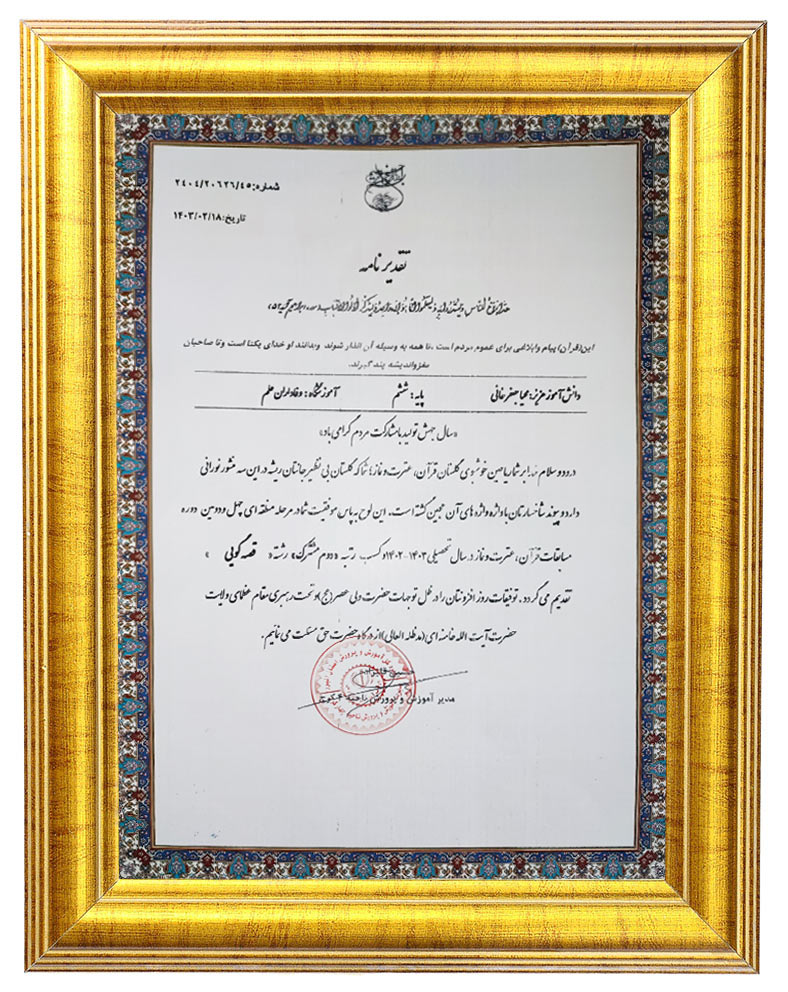 شماره: ۲۴۰۴/۲۰۶۲۶/۴۵
تاریخ: ۱۴۰۳/۰۲/۱۸
تقدیر نامه
هذا بلاغ للناس و لینذروا به و لیعلموا انما هو اله واحد و لیذکر اولوا الالباب
این(قرآن) پیام وابلاغی برای عموم مردم است ،تا همه به وسیله آن انذار شوند وبدانند او خدای یکتا است وتا صاحبان
مغز واندیشه پند گیرند.
دانش آموز عزیز: محیا جعفرخانی پایه: ششم آموزشگاه: وفاداران علم
«سال جهش تولید بامشارکت مردم گرامی باد»
درود و سلام خدا بر شما ریاحین خوشبوی گلستان قرآن، عترت و نماز؛ شما که گلستان بی نظیر جانتان ریشه در این سه منشور نورانی
دارد و پیوند شاخسارتان با واژه واژه های آن عجین گشته است. این لوح به پاس موفقیت شما در مرحله منطقه ای چهل و دومین دوره
مسابقات قرآن، عترت و نماز در سال تحصیلی ۱۴۰۳-۱۴۰۲ و کسب رتبه «دوم مشترک» رشته « قصه گویی »
تقدیم می گردد. توفیقات روز افزونتان را در ظل توجهات حضرت ولی عصر(عج)و تحت رهبری مقام عظمای ولایت
حضرت آیت الله خامنه ای(مدظله العالی)از درگاه حضرت حق مسئلت می نماییم.
مدیر آموزش و پرورش ناحیه